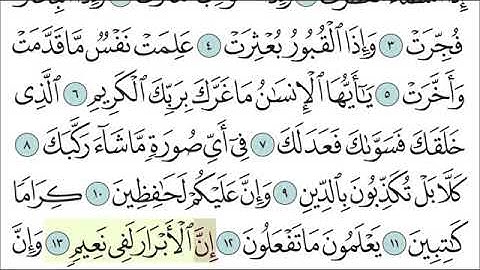 فُجِّرَتْ ٣ وَإِذَا ٱلْقُبُورُ بُعْثِرَتْ ٤ عَلِمَتْ نَفْسٌ مَّا قَدَّمَتْ
وَأَخَّرَتْ ٥ يَٰٓأَيُّهَا ٱلْإِنسَٰنُ مَا غَرَّكَ بِرَبِّكَ ٱلْكَرِيمِ ٦ ٱلَّذِى
خَلَقَكَ فَسَوَّىٰكَ فَعَدَلَكَ ٧ فِىٓ أَىِّ صُورَةٍ مَّا شَآءَ رَكَّبَكَ ٨
كَلَّا بَلْ تُكَذِّبُونَ بِٱلدِّينِ ٩ وَإِنَّ عَلَيْكُمْ لَحَٰفِظِينَ ١٠ كِرَامًا
كَٰتِبِينَ ١١ يَعْلَمُونَ مَا تَفْعَلُونَ ١٢ إِنَّ ٱلْأَبْرَارَ لَفِى نَعِيمٍ ١٣ وَإِنَّ